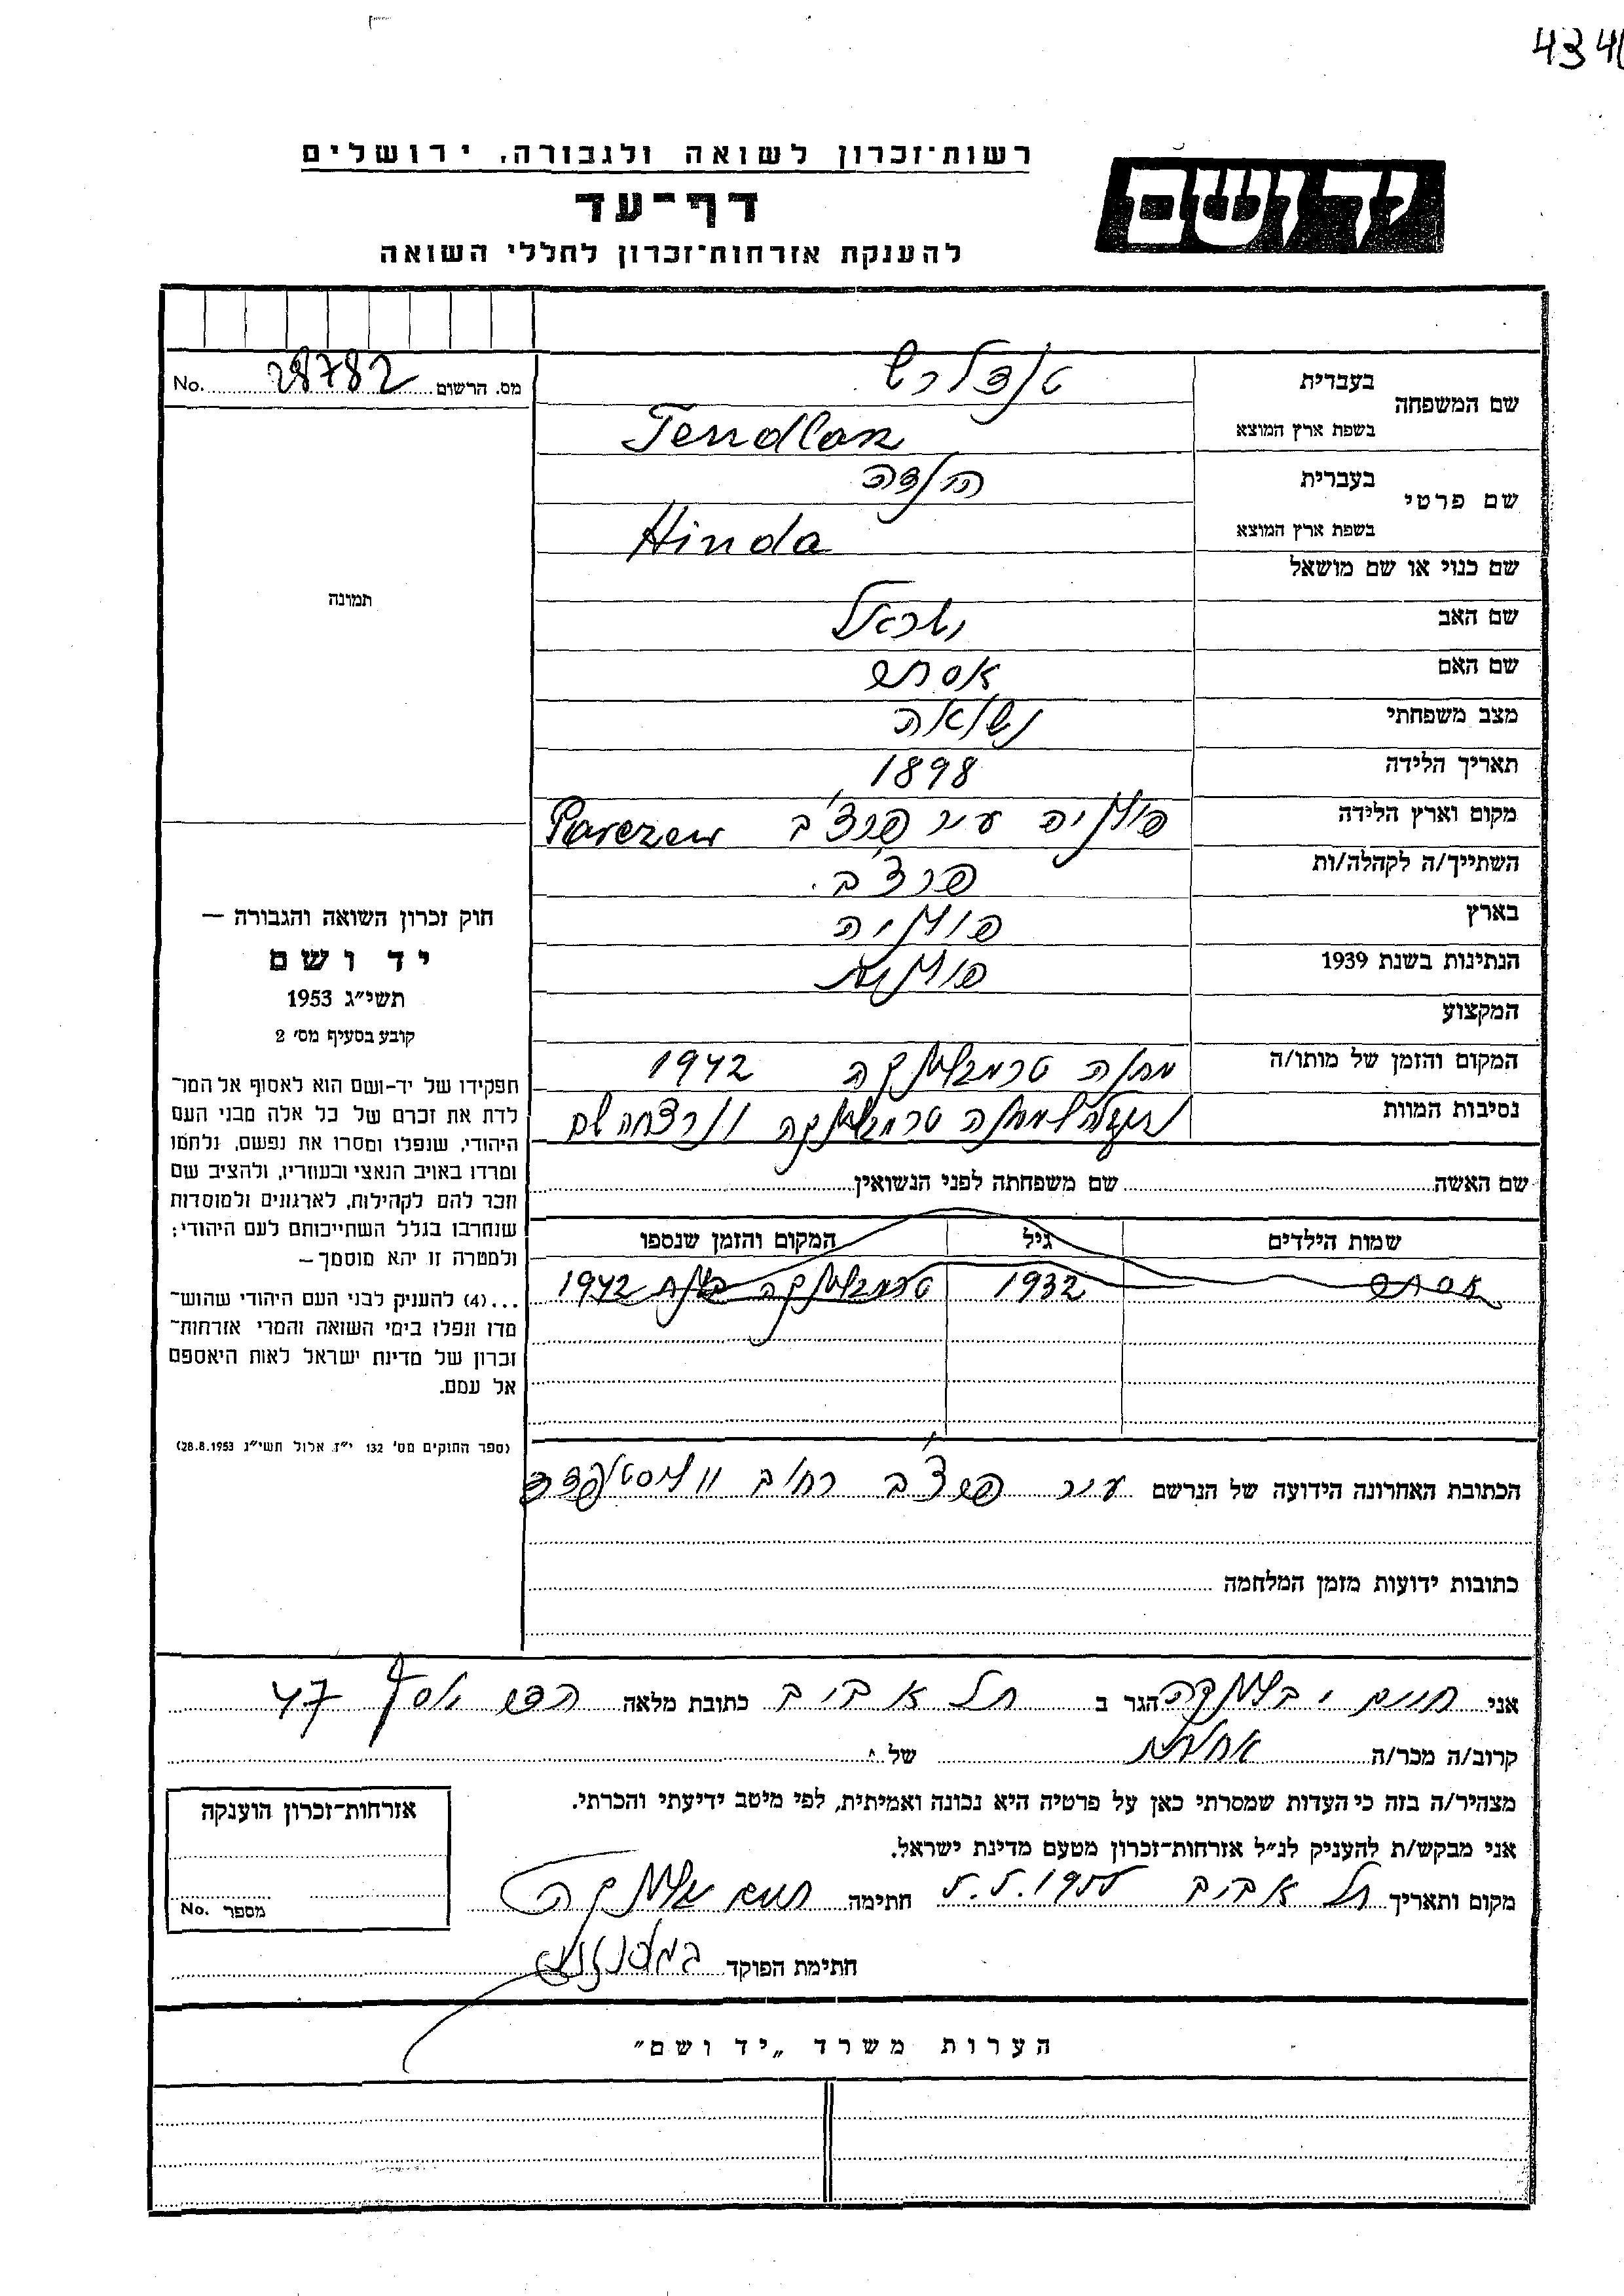 434
רשות־זכרון לשואה ולגבורה, ירושלים
ידושם
דף־עד
להענקת אזרחות־זכרון לחללי השואה
No. 28782 מס. הרשום
תמונה
שם המשפחה
בעברית
בשפת ארץ המוצא Tendlar
שם פרטי
בעברית הינדה
בשפת ארץ המוצא Hinda
שם כנוי או שם מושאל
שם האב ישראל
שם האם אסתר
מצב משפחתי נשואה
תאריך הלידה 1898
מקום וארץ הלידה פולניה עיר פרצ'ב Parczew
השתייך/ה לקהלה/ות פרצ'ב.
בארץ פולניה
הנתינות בשנת 1939 פולנית
המקצוע
המקום והזמן של מותו/ה מחנה טרבלינקה 1942
נסיבות המוות למחנה טרבלינקה ונרצחה שם
שם האשה שם משפחתה לפני הנשואין
שמות הילדים גיל המקום והזמן שנספו
אסתר 1932 טרבלינקה 1942
הכתובת האחרונה הידועה של הנרשם עיר פרצ'ב רחוב
כתובות ידועות מזמן המלחמה
חוק זכרון השואה והגבורה —
יד ושם
תשי״ג 1953
קובע בסעיף מס׳ 2
תפקידו של יד־ושם הוא לאסוף אל המו־
לדת את זכרם של כל אלה מבני העם
היהודי, שנפלו ומסרו את נפשם, נלחמו
ומרדו באויב הנאצי ובעוזריו, ולהציב שם
וזכר להם לקהילות, לארגונים ולמוסדות
שנחרבו בגלל השתייכותם לעם היהודי;
ולמטרה זו יהא מוסמך—
...(4) להעניק לבני העם היהודי שהוש־
מדו ונפלו בימי השואה והמרי אזרחות־
זכרון של מדינת ישראל לאות היאספם
אל עמם.
(ספר החוקים מס׳ 132 י״ז אלול תשי״ג 28.8.1953)
אני חיים הגר ב תל אביב כתובת מלאה 47
קרוב/ה מכר/ה של
מצהיר/ה בזה כי העדות שמסרתי כאן על פרטיה היא נכונה ואמיתית, לפי מיטב ידיעתי והכרתי.
אני מבקש/ת להעניק לנ״ל אזרחות־זכרון מטעם מדינת ישראל.
מקום ותאריך תל אביב 5.5.1955 חתימה
חתימת הפוקד
אזרחות־זכרון הוענקה
No. מספר
הערות משרד „יד ושם״